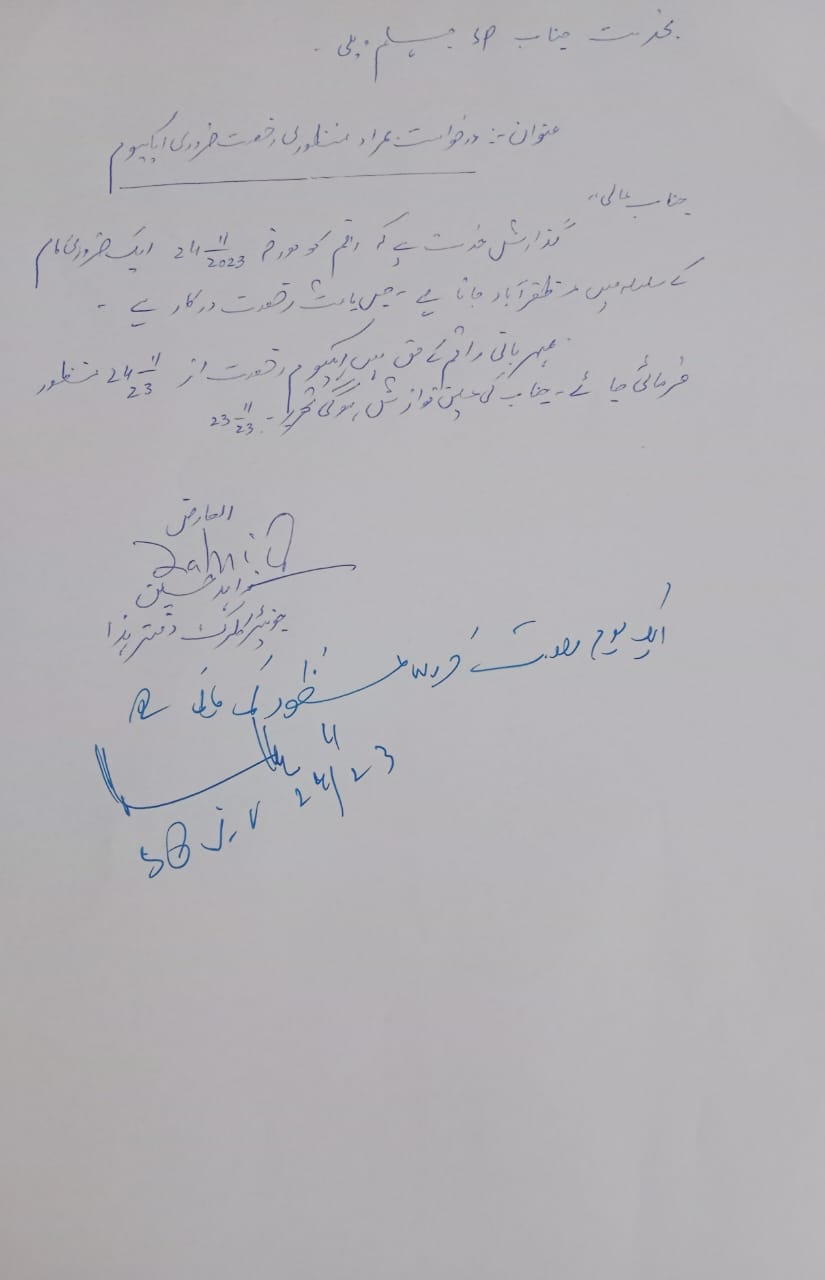 بخدمت جناب SP جہلم ویلی ۔
عنوان :- درخواست بمراد منظوری رخصت ضروری ایکیوم
جناب عالی"
گذارش خدمت ہے کہ راقم کو مورخہ 24 11/2023 ایک ضروری کام
کے سلسلہ میں مظفرآباد جانا ہے ۔ جس باعث رخصت درکار ہے ۔
مہربانی راقم کے حق میں ایکیوم رخصت از 24 11/23 منظور
فرمائی جائے ۔ جناب کی عین نوازش ہوگی تحریر ۔ 23 11/23
العارض
حسین
جونیئر کلرک دفتر ہذا
ایک یوم رخصت منظور کی جاتی ہے
24/11/23